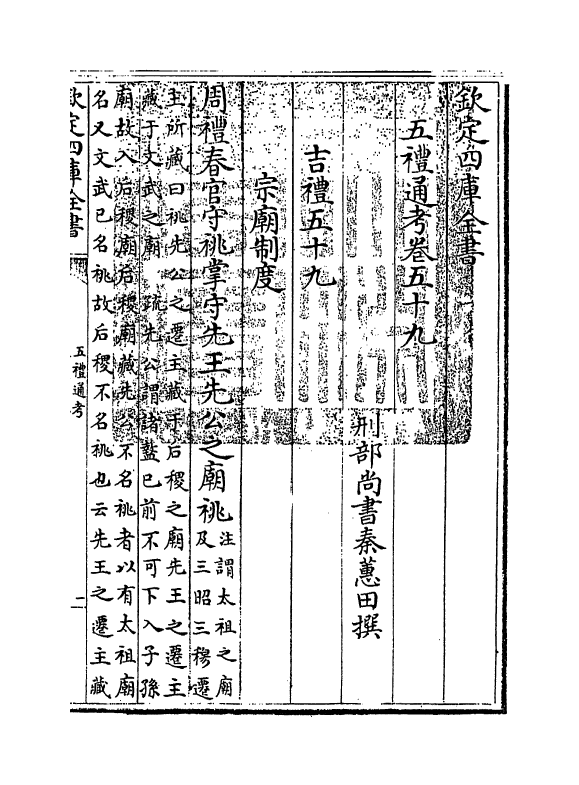 欽定四庫全書
五禮通考卷五十九
刑部尚書秦蕙田撰
吉禮五十九
宗廟制度
周禮春官守祧掌守先王先公之廟祧注謂太祖之廟
及三昭三穆遷
主所藏曰祧先公之遷主藏于后稷之廟先王之遷主
藏于文武之廟 疏先公謂諸盩已前不可下入子孫
廟故入后稷廟后稷廟藏先公不名祧者以有太祖廟
名又文武已名祧故后稷不名祧也云先王之遷主藏
欽定四庫全書
五禮通考